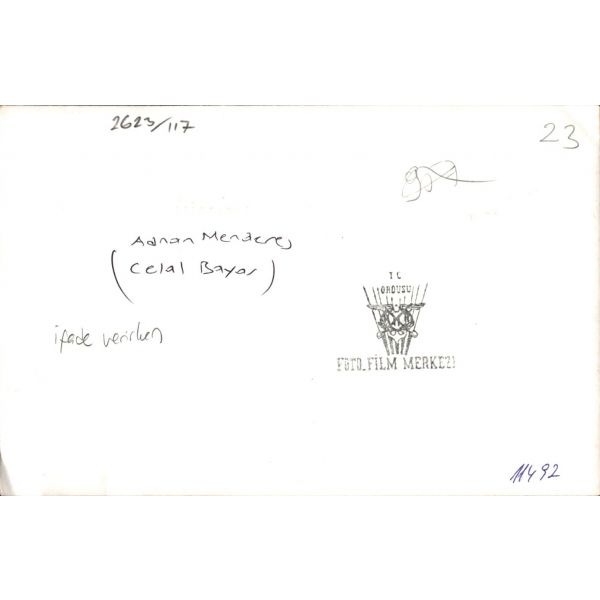 2623/117
23
Adnan Menderes
(Celal Bayar)
ifade verirken
T C
ORDUSU
FOTO_FİLM MERKEZİ
11492